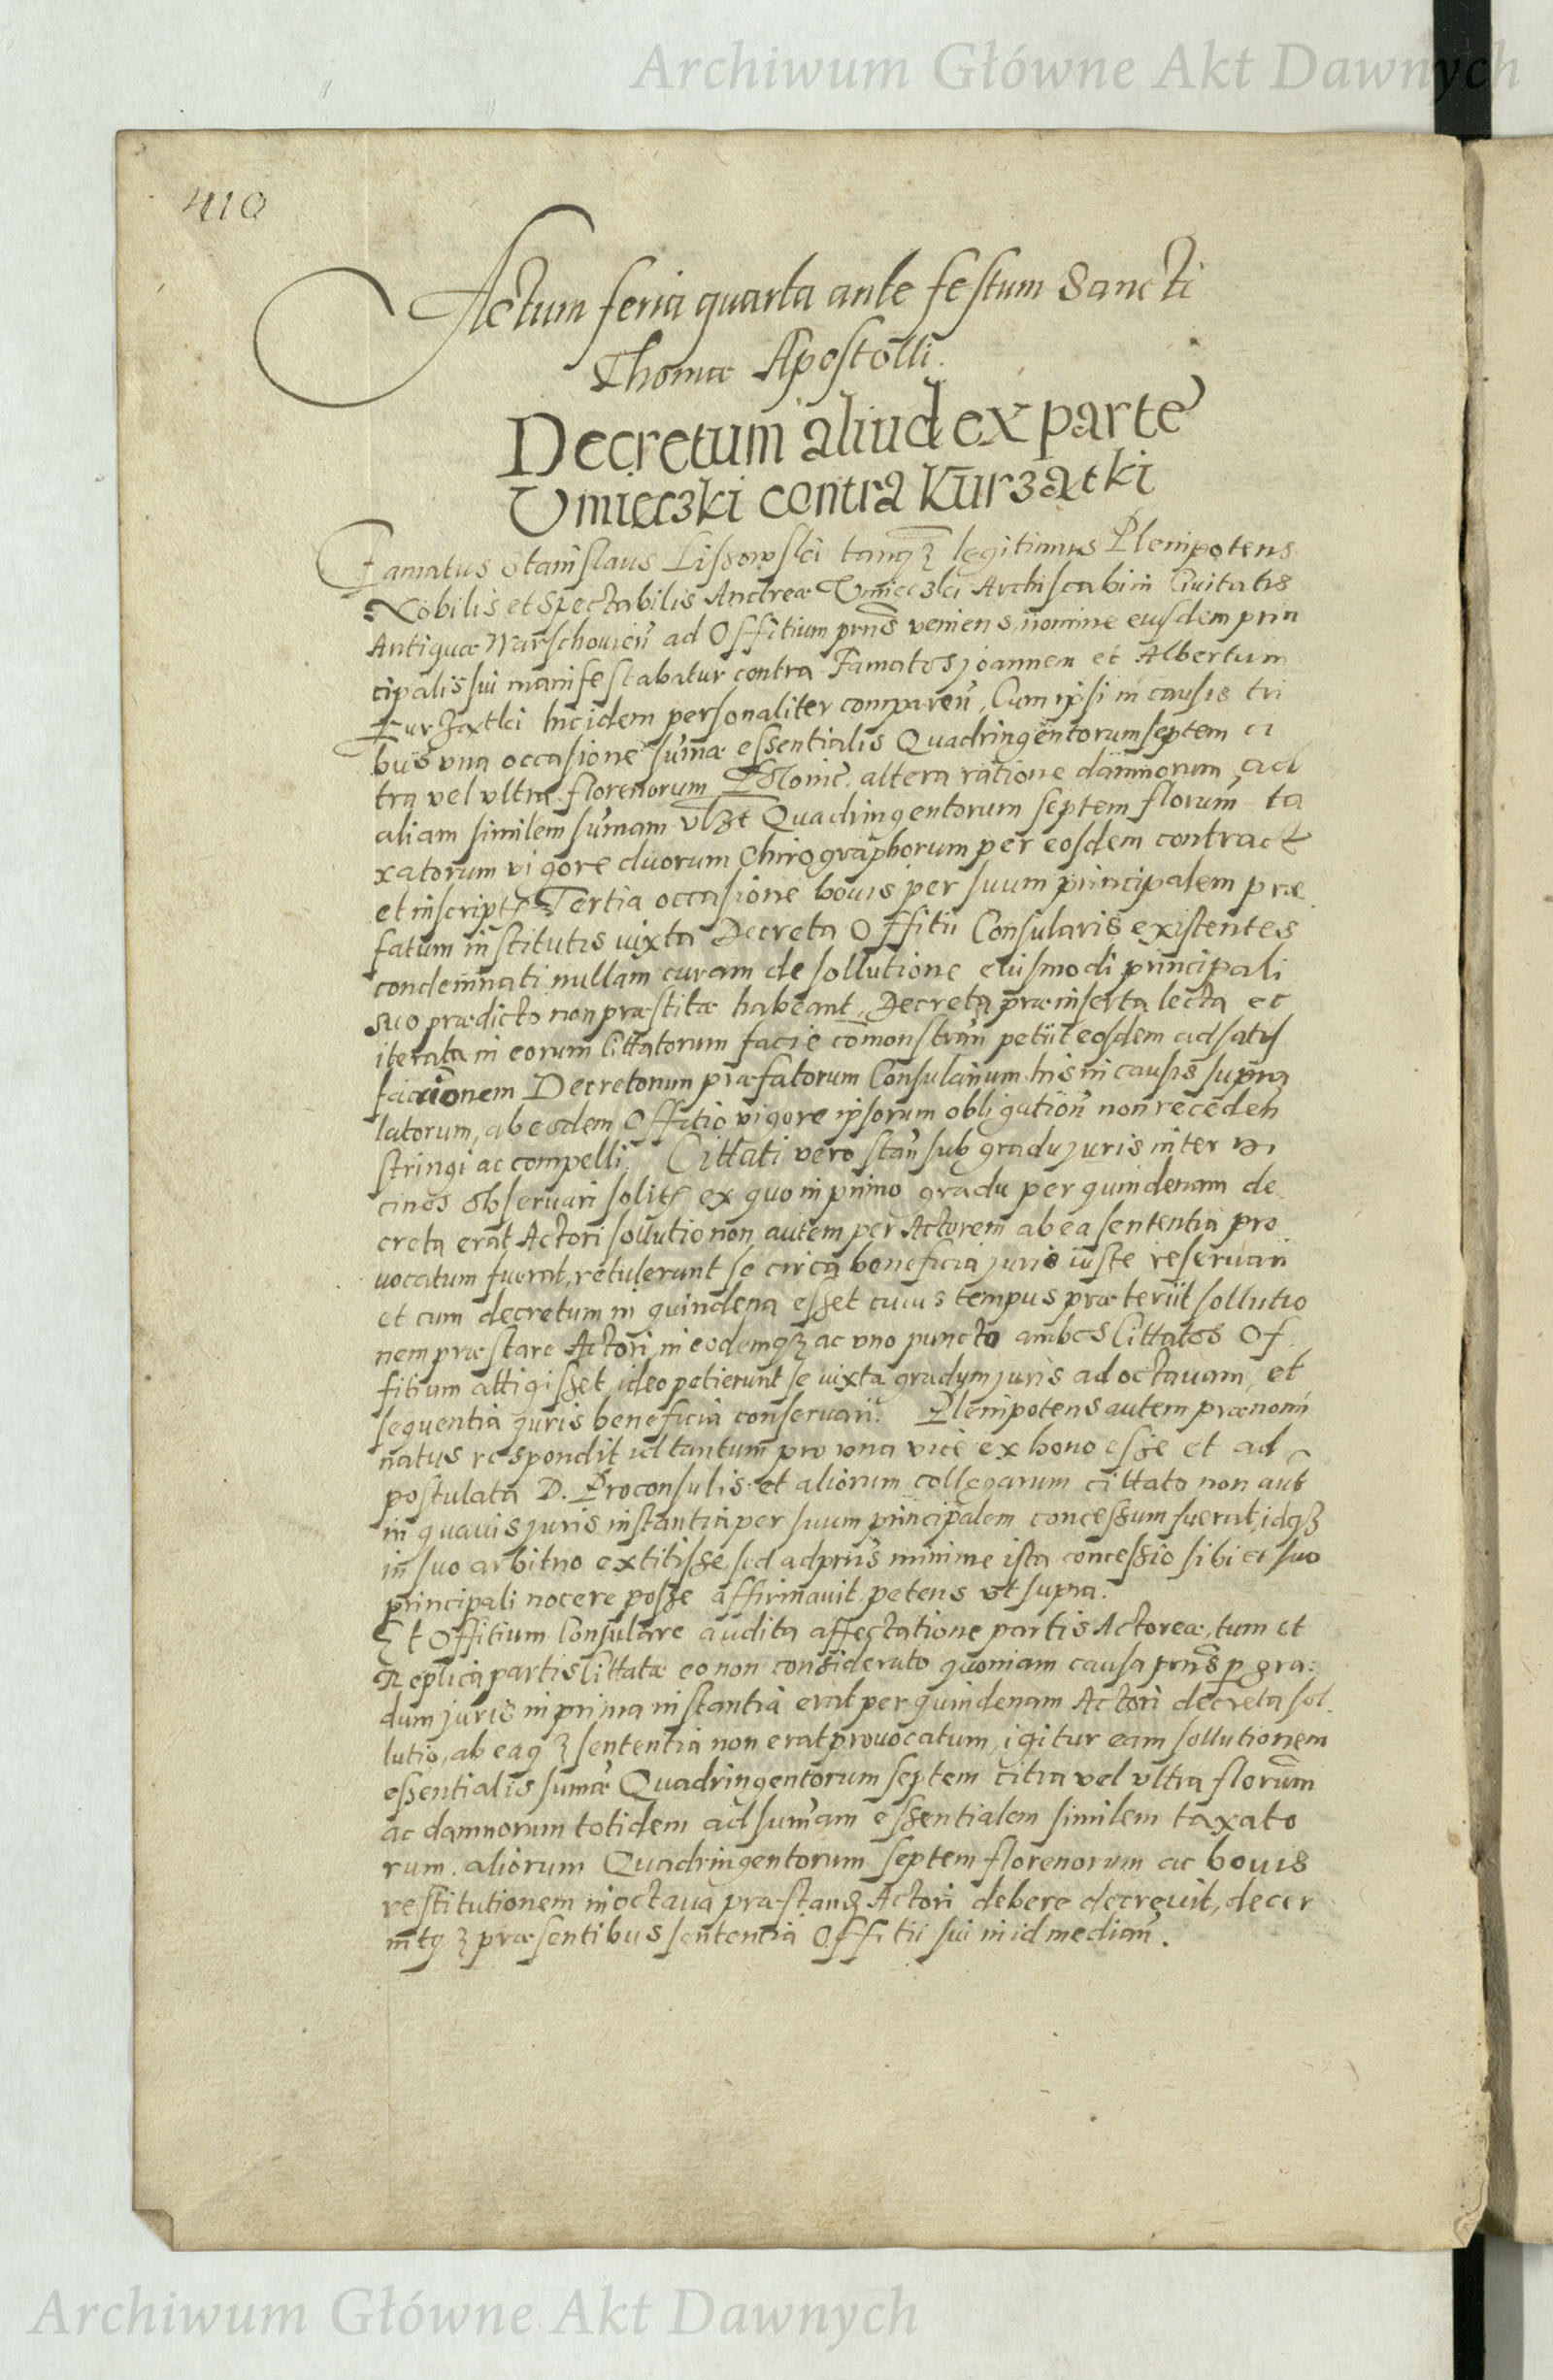 Archiwum Główne Akt Dawnych
410
Actum feria quarta ante festum Sancti
Thomæ Apostolli.
Decretum aliud ex parte
Umieczki contra Kurzątki
Famatus Stanislaus Lissowski tanqꝫ legitimus Plenipotens
Nobilis et Spectabilis Andreæ Umieczki Archiscabini Civitatis
Antiquæ Warschovien̄ ad Offitium prn̄s veniens, nomine eiusdem prin
cipalis sui manifestabatur contra Famatos Joannem et Albertum
Kurzątki ibidem personaliter comparen̄, Cum ipsi in causis tri
bus una occasione sum̄æ essentialis Quadringentorum septem ci
tra vel ultra florenorum Polonic. altera ratione damnorum ad
aliam similem sum̄am vꝫt Quadringentorum septem florum̄ ta
xatorum vigore duorum Chirographorum per eosdem contract
et inscript. Tertia occasione bovis per suum principalem præ
fatum institutis iuxta Decreta Offitii Consularis existentes
condemnati nullam curam de sollutione eiusmodi principali
suo prædicto non præstitæ habeant, Decreta præinserta lecta et
iterata in eorum Cittatorum facie com̄onstran̄ petiit eosdem ad satis
factionem Decretorum præfatorum Consularium his in causis supra
latorum, ab eodem Offitio vigore ipsorum obligation̄ non receden̄
stringi ac compelli. Cittati vero stan̄ sub gradu juris inter vi
cinos observari solit ex quo in primo gradu per quindenam de
creta erat Actori sollutio non autem per Actorem ab ea sententia pro
vocatum fuerat, retulerunt se circa beneficia juris iuste reservari
et cum decretum in quindena esset cuius tempus præteriit sollutio
nem præstare Actori in eodemqꝫ ac uno puncto ambos Cittatos Of
fitium attigisset, ideo petierunt se iuxta gradum juris ad octavam et
sequentia juris beneficia conservari. Plenipotens autem prænomi
natus respondit id tantum pro una vice ex bono esse et ad
postulata D. Proconsulis et aliorum collegarum cittato non aut̄
in quavis juris instantia per suum principalem concessum fuerat, idqꝫ
in suo arbitrio extitisse, sed ad prn̄s minime ista concessio sibi et suo
principali nocere posse affirmavit, petens ut supra.
Et Offitium Consulare audita affectatione partis Actoreæ, tum et
Replica partis Cittatæ eo non considerato quoniam causa prn̄s p gra:
dum juris in prima instantia erat per quindenam Actori decreta sol
lutio, ab eaqꝫ sententia non erat provocatum, igitur eam sollutionem
essentialis sum̄æ Quadringentorum septem citra vel ultra florum̄
ac damnorum totidem ad sum̄am essentialem similem taxato
rum. aliorum Quadringentorum septem florenorum ac bovis
restitutionem in octava præstand Actori debere decrevit, decer
nitqꝫ præsentibus sententia Offitii sui in id median̄.
Archiwum Główne Akt Dawnych